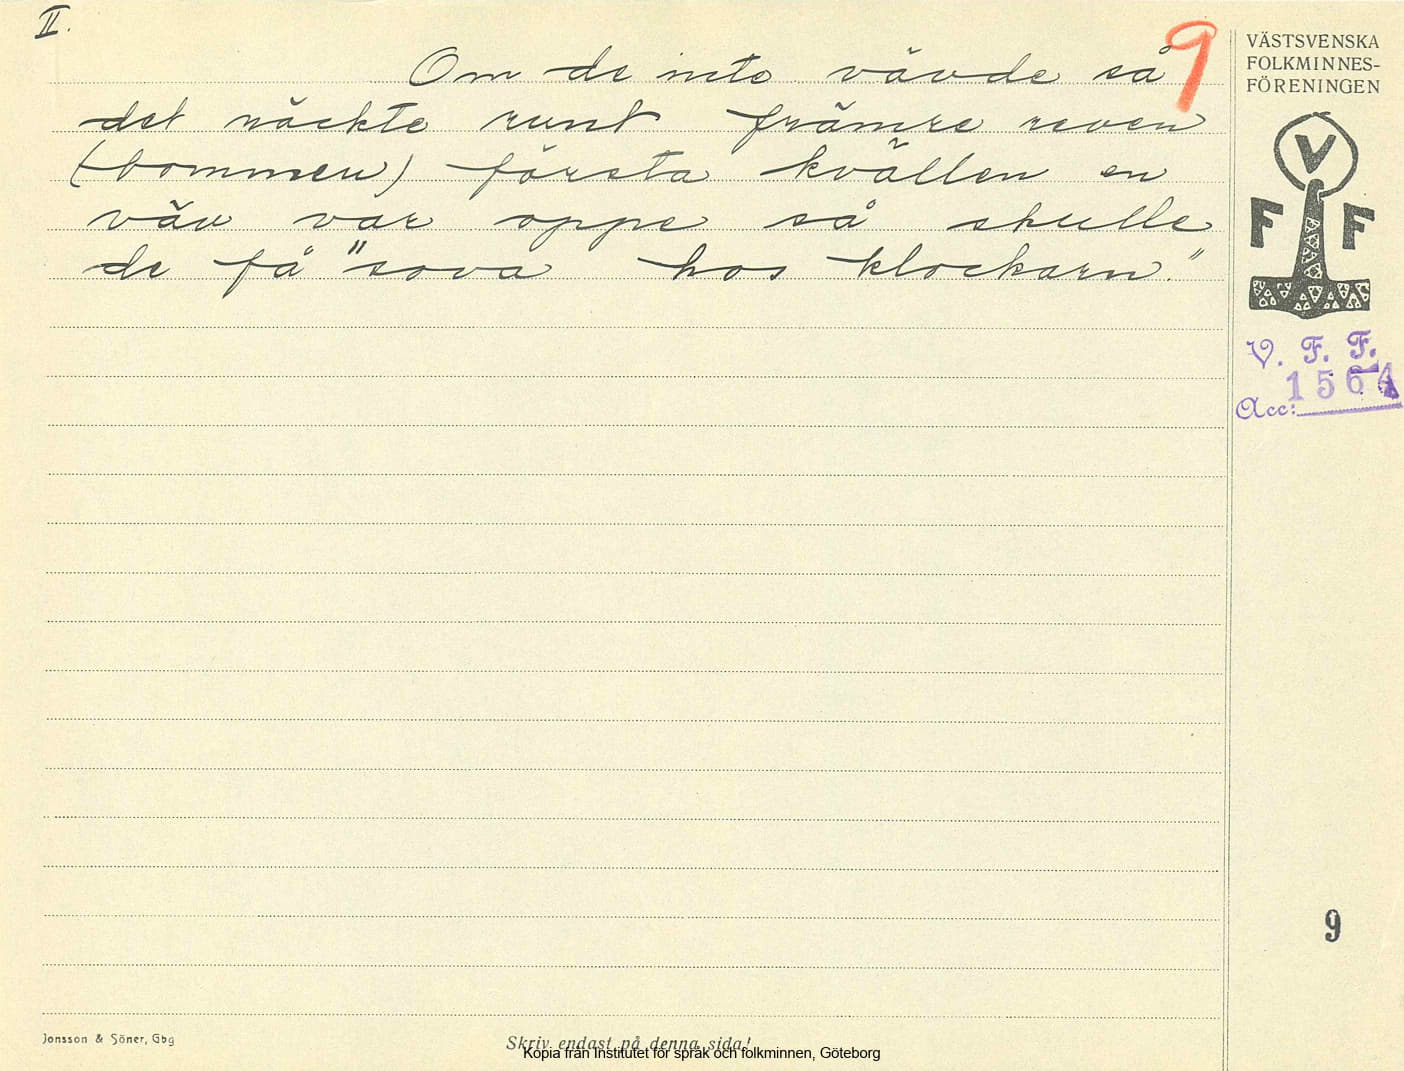 II.
9
Om de inte vävde så
det räckte runt främre reven
(bommen) första kvällen en
väv var oppe så skulle
de få "sova hos klockarn."
VÄSTSVENSKA
FOLKMINNES-
FÖRENINGEN
V
F F
V. F. F.
1564
Acc:
9
Jonsson & Söner, Gbg
Skriv endast på denna sida!
Kopia från Institutet för språk och folkminnen, Göteborg